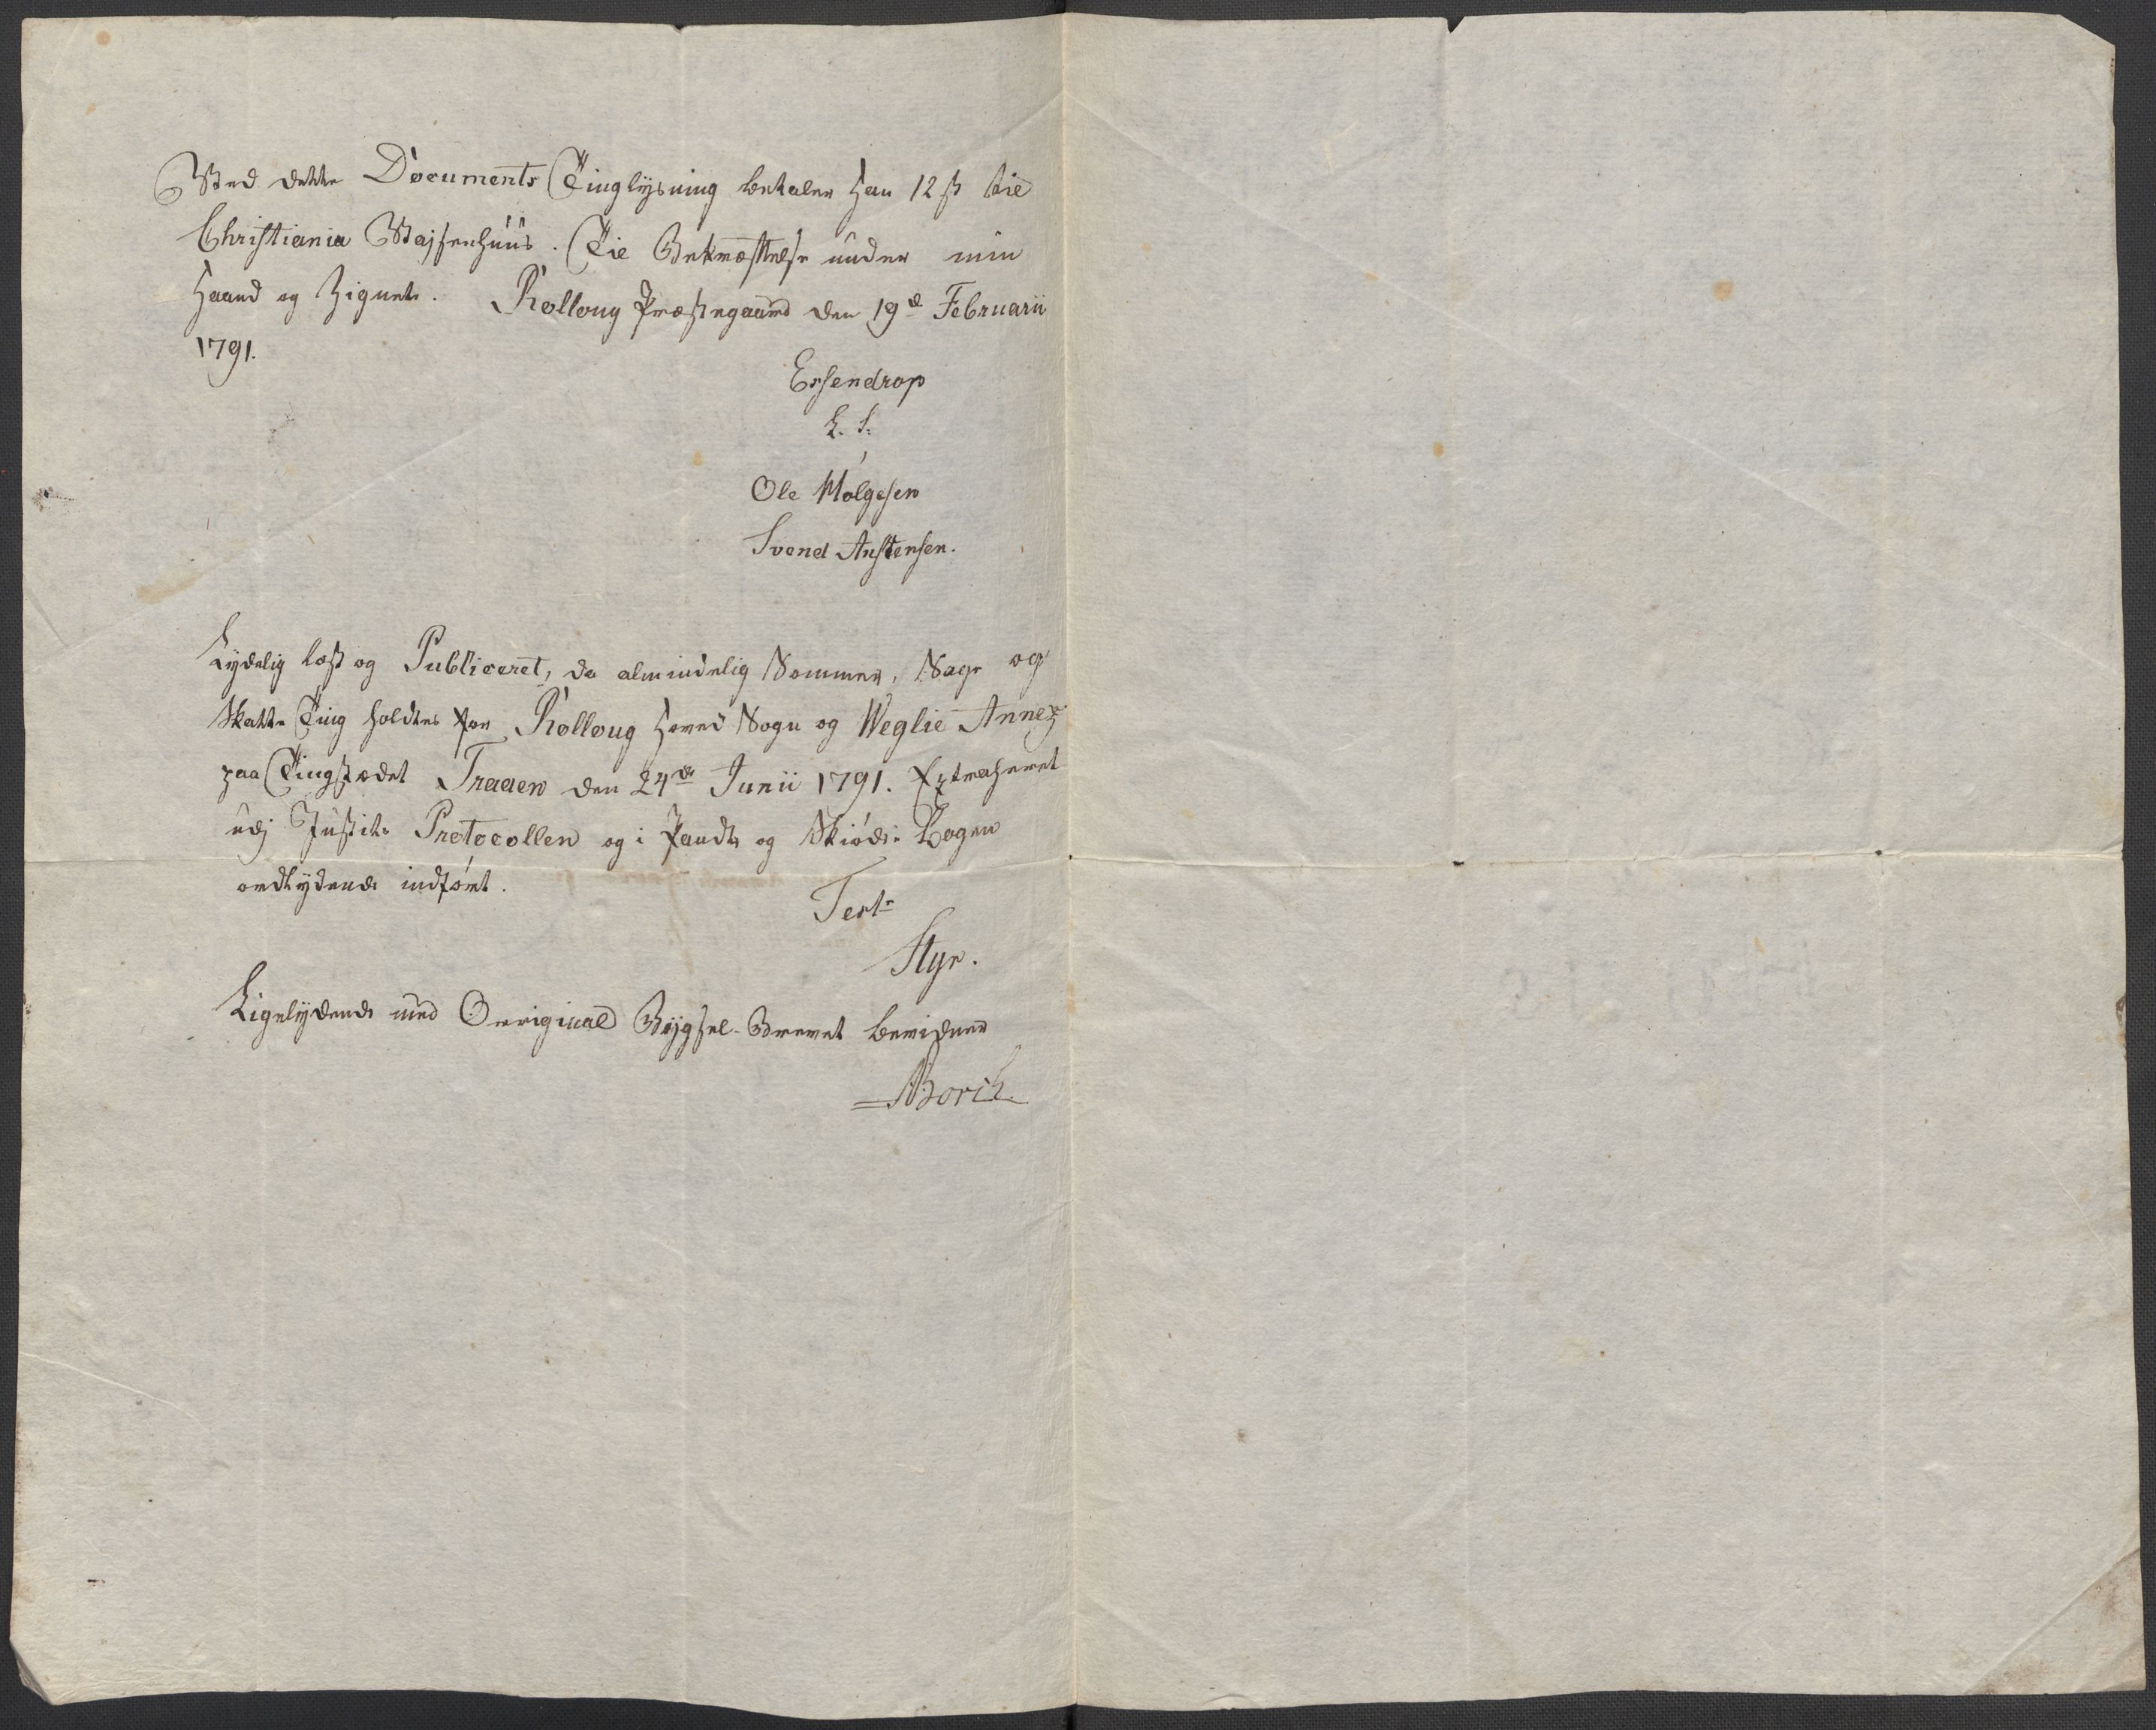 Ved dette Documents Tinglysning betaler han 12 ß til
Christiania Vajsenhuus. Til Bekræftelse under min
Haand og Zignete. Rolloug Præstegaard den 19de Februarii
1791.
Essendrop
L. S.
Ole Holgesen
Svend Anstensen.
Lydelig læst og Publiceret, da almindelig Sommer, Sage og
Skatte Ting holdtes for Rolloug Hoved Sogn og Weglie Annex
paa Tingstædet Traaen den 24de Junii 1791. Extraheret
udj Justits Protocollen og i Pandte og Skiøde-Bogen
ordlydende indført.
Test:
Styr.
Ligelydende med Orriginal Bygsel-Brevet bevidner